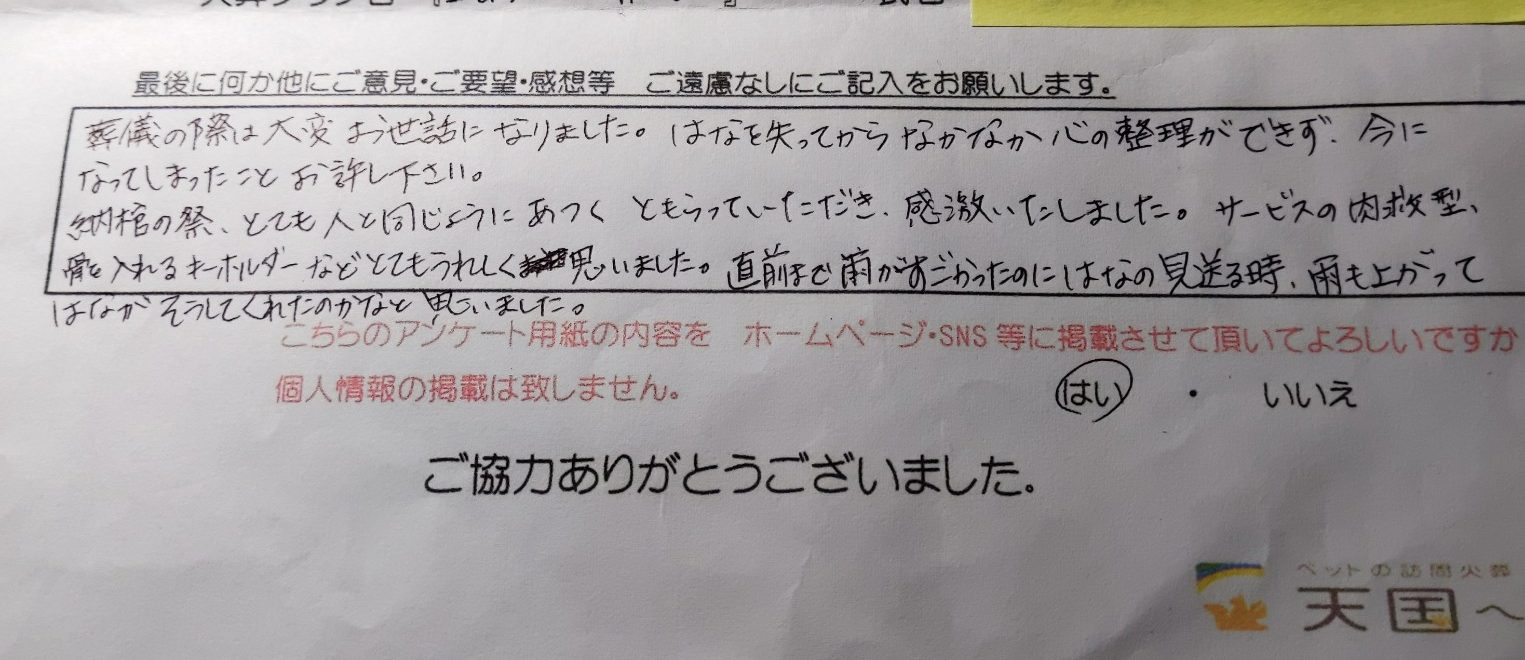 最後に何か他にご意見・ご要望・感想等 ご遠慮なしにご記入をお願いします。
葬儀の際は大変お世話になりました。はなを失ってからなかなか心の整理ができず、今に
なってしまったことお許し下さい。
納棺の祭、とても人と同じようにあつくともらっていただき、感激いたしました。サービスの肉球型、
骨を入れるキーホルダーなどとてもうれしく思いました。直前まで雨がすごかったのにはなの見送る時、雨も上がって
はながそうしてくれたのかなと思いました。
こちらのアンケート用紙の内容を ホームページ・SNS等に掲載させて頂いてよろしいですか
個人情報の掲載は致しません。 はい ・ いいえ
ご協力ありがとうございました。
ペットの訪問火葬
天国へ